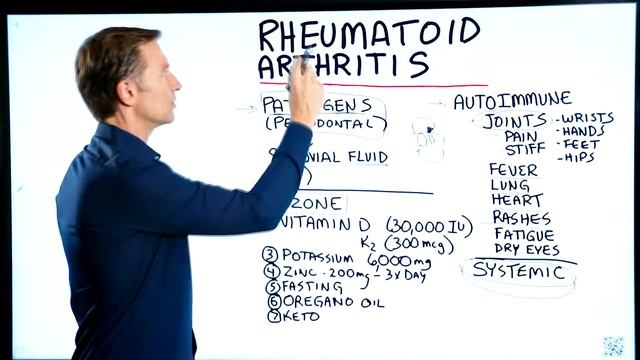 RHEUMATOID
ARTHRITIS
PATHOGENS
(PERIODONTAL)
FLUID
VITAMIN D (30,000 IU)
K2 (300 mcg)
③ POTASSIUM 6,000 mg
④ ZINC - 200mg - 3X DAY
⑤ FASTING
⑥ OREGANO OIL
⑦ KETO
AUTOIMMUNE
JOINTS - WRISTS
PAIN - HANDS
STIFF - FEET
- HIPS
FEVER
LUNG
HEART
RASHES
FATIGUE
DRY EYES
SYSTEMIC